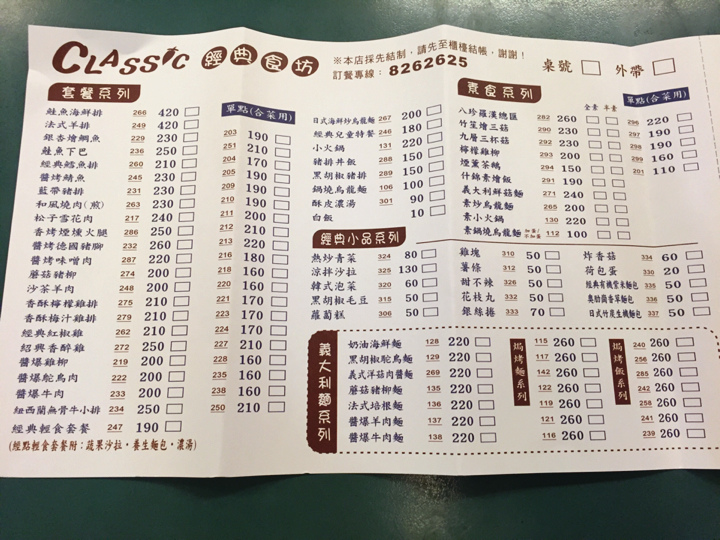 CLASSIC 經典食坊
※本店採先結制，請先至櫃檯結帳，謝謝！
訂餐專線：8262625
桌號 □ 外帶 □
套餐系列
單點(合菜用)
鮭魚海鮮排 266 420 □
法式羊排 249 420 □ 203 190 □
銀杏燴鯛魚 229 230 □ 251 210 □
鮭魚下巴 236 250 □ 204 170 □
經典鱈魚排 260 210 □ 205 190 □
醬烤鯖魚 245 230 □ 209 190 □
藍帶豬排 231 230 □ 210 190 □
和風燒肉(煎) 263 230 □ 211 190 □
松子雪花肉 217 240 □ 212 200 □
香烤煙燻火腿 286 250 □ 213 210 □
醬烤德國豬腳 232 260 □ 213 220 □
醬烤味噌肉 287 220 □ 216 180 □
蘑菇豬柳 274 200 □ 218 160 □
沙茶羊肉 248 200 □ 220 160 □
香酥檸檬雞排 275 210 □ 221 170 □
香酥梅汁雞排 279 210 □ 223 170 □
經典紅椒雞 262 210 □ 224 170 □
紹興香醉雞 272 250 □ 227 210 □
醬爆雞柳 219 200 □ 228 160 □
醬爆鴕鳥肉 222 200 □ 235 160 □
醬爆牛肉 233 200 □ 238 160 □
紐西蘭無骨牛小排 234 250 □ 250 210 □
經典輕食套餐 247 190 □
(經點輕食套餐附：蔬果沙拉·養生麵包·濃湯)
日式海鮮炒烏龍麵 267 200 □
經典兒童特餐 246 180 □
小火鍋 131 220 □
豬排丼飯 288 180 □
黑胡椒豬排 289 180 □
鍋燒烏龍麵 106 100 □
酥皮濃湯 301 90 □
白飯 10 □
素食系列
全素 半素 單點(合菜用)
八珍羅漢總匯 282 260 □ □ 296 220 □
竹笙燴三菇 290 230 □ □ 297 190 □
九層三杯菇 292 230 □ □ 298 190 □
檸檬雞柳 293 200 □ □ 299 160 □
煙薰茶鵝 294 150 □ □ 201 110 □
什錦素燴飯 291 190 □ □
義大利鮮菇麵 271 240 □ □
素炒烏龍麵 265 200 □ □
素小火鍋 130 220 □ □
素鍋燒烏龍麵 加蛋/不加蛋 112 100 □ □
經典小品系列
熱炒青菜 324 80 □
涼拌沙拉 325 130 □
韓式泡菜 320 60 □
黑胡椒毛豆 315 50 □
蘿蔔糕 306 50 □
雞塊 310 50 □
薯條 312 50 □
甜不辣 326 50 □
花枝丸 332 50 □
銀絲捲 333 70 □
炸香菇 334 60 □
荷包蛋 330 20 □
經典有機紫米麵包 335 50 □
奧勒岡香草麵包 336 50 □
日式竹炭生機麵包 337 50 □
義大利麵系列
奶油海鮮麵 128 220 □
黑胡椒鴕鳥麵 129 220 □
義式洋菇肉醬麵 269 220 □
蘑菇豬柳麵 135 220 □
法式培根麵 136 220 □
醬爆羊肉麵 137 220 □
醬爆牛肉麵 138 220 □
焗烤麵系列
115 260 □
117 260 □
142 260 □
118 260 □
119 260 □
121 260 □
116 260 □
焗烤飯系列
240 260 □
256 260 □
285 260 □
242 260 □
258 260 □
241 260 □
239 260 □